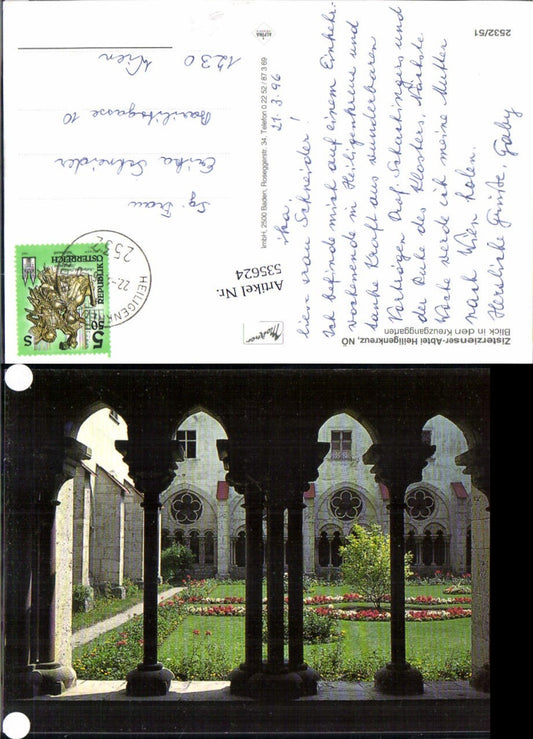 Zisterzienser-Abtei Heiligenkreuz, NÖ
Blick in den Kreuzganggarten
2532/51
21.3.96
Liebe Frau Schneider!
Ich befinde mich auf einem Einkehr-
wochenende in Heiligenkreuz und
tanke Kraft aus wunderbaren
Vorträgen Prof. Schachingers und
der Ruhe des Klosters. Nächste
Woche werde ich meine Mutter
nach Wien holen.
Herzliche Grüße, Gaby
Artikel Nr.
535624
mbH, 2500 Baden, Roseggerstr. 34, Telefon 0 22 52 / 87 3 69
ALPINA
REPUBLIK
ÖSTERREICH
5.50
S
2532
22.
HEILIGENK
Sg. Frau
Erika Schneider
Basilitsgasse 10
1230 Wien